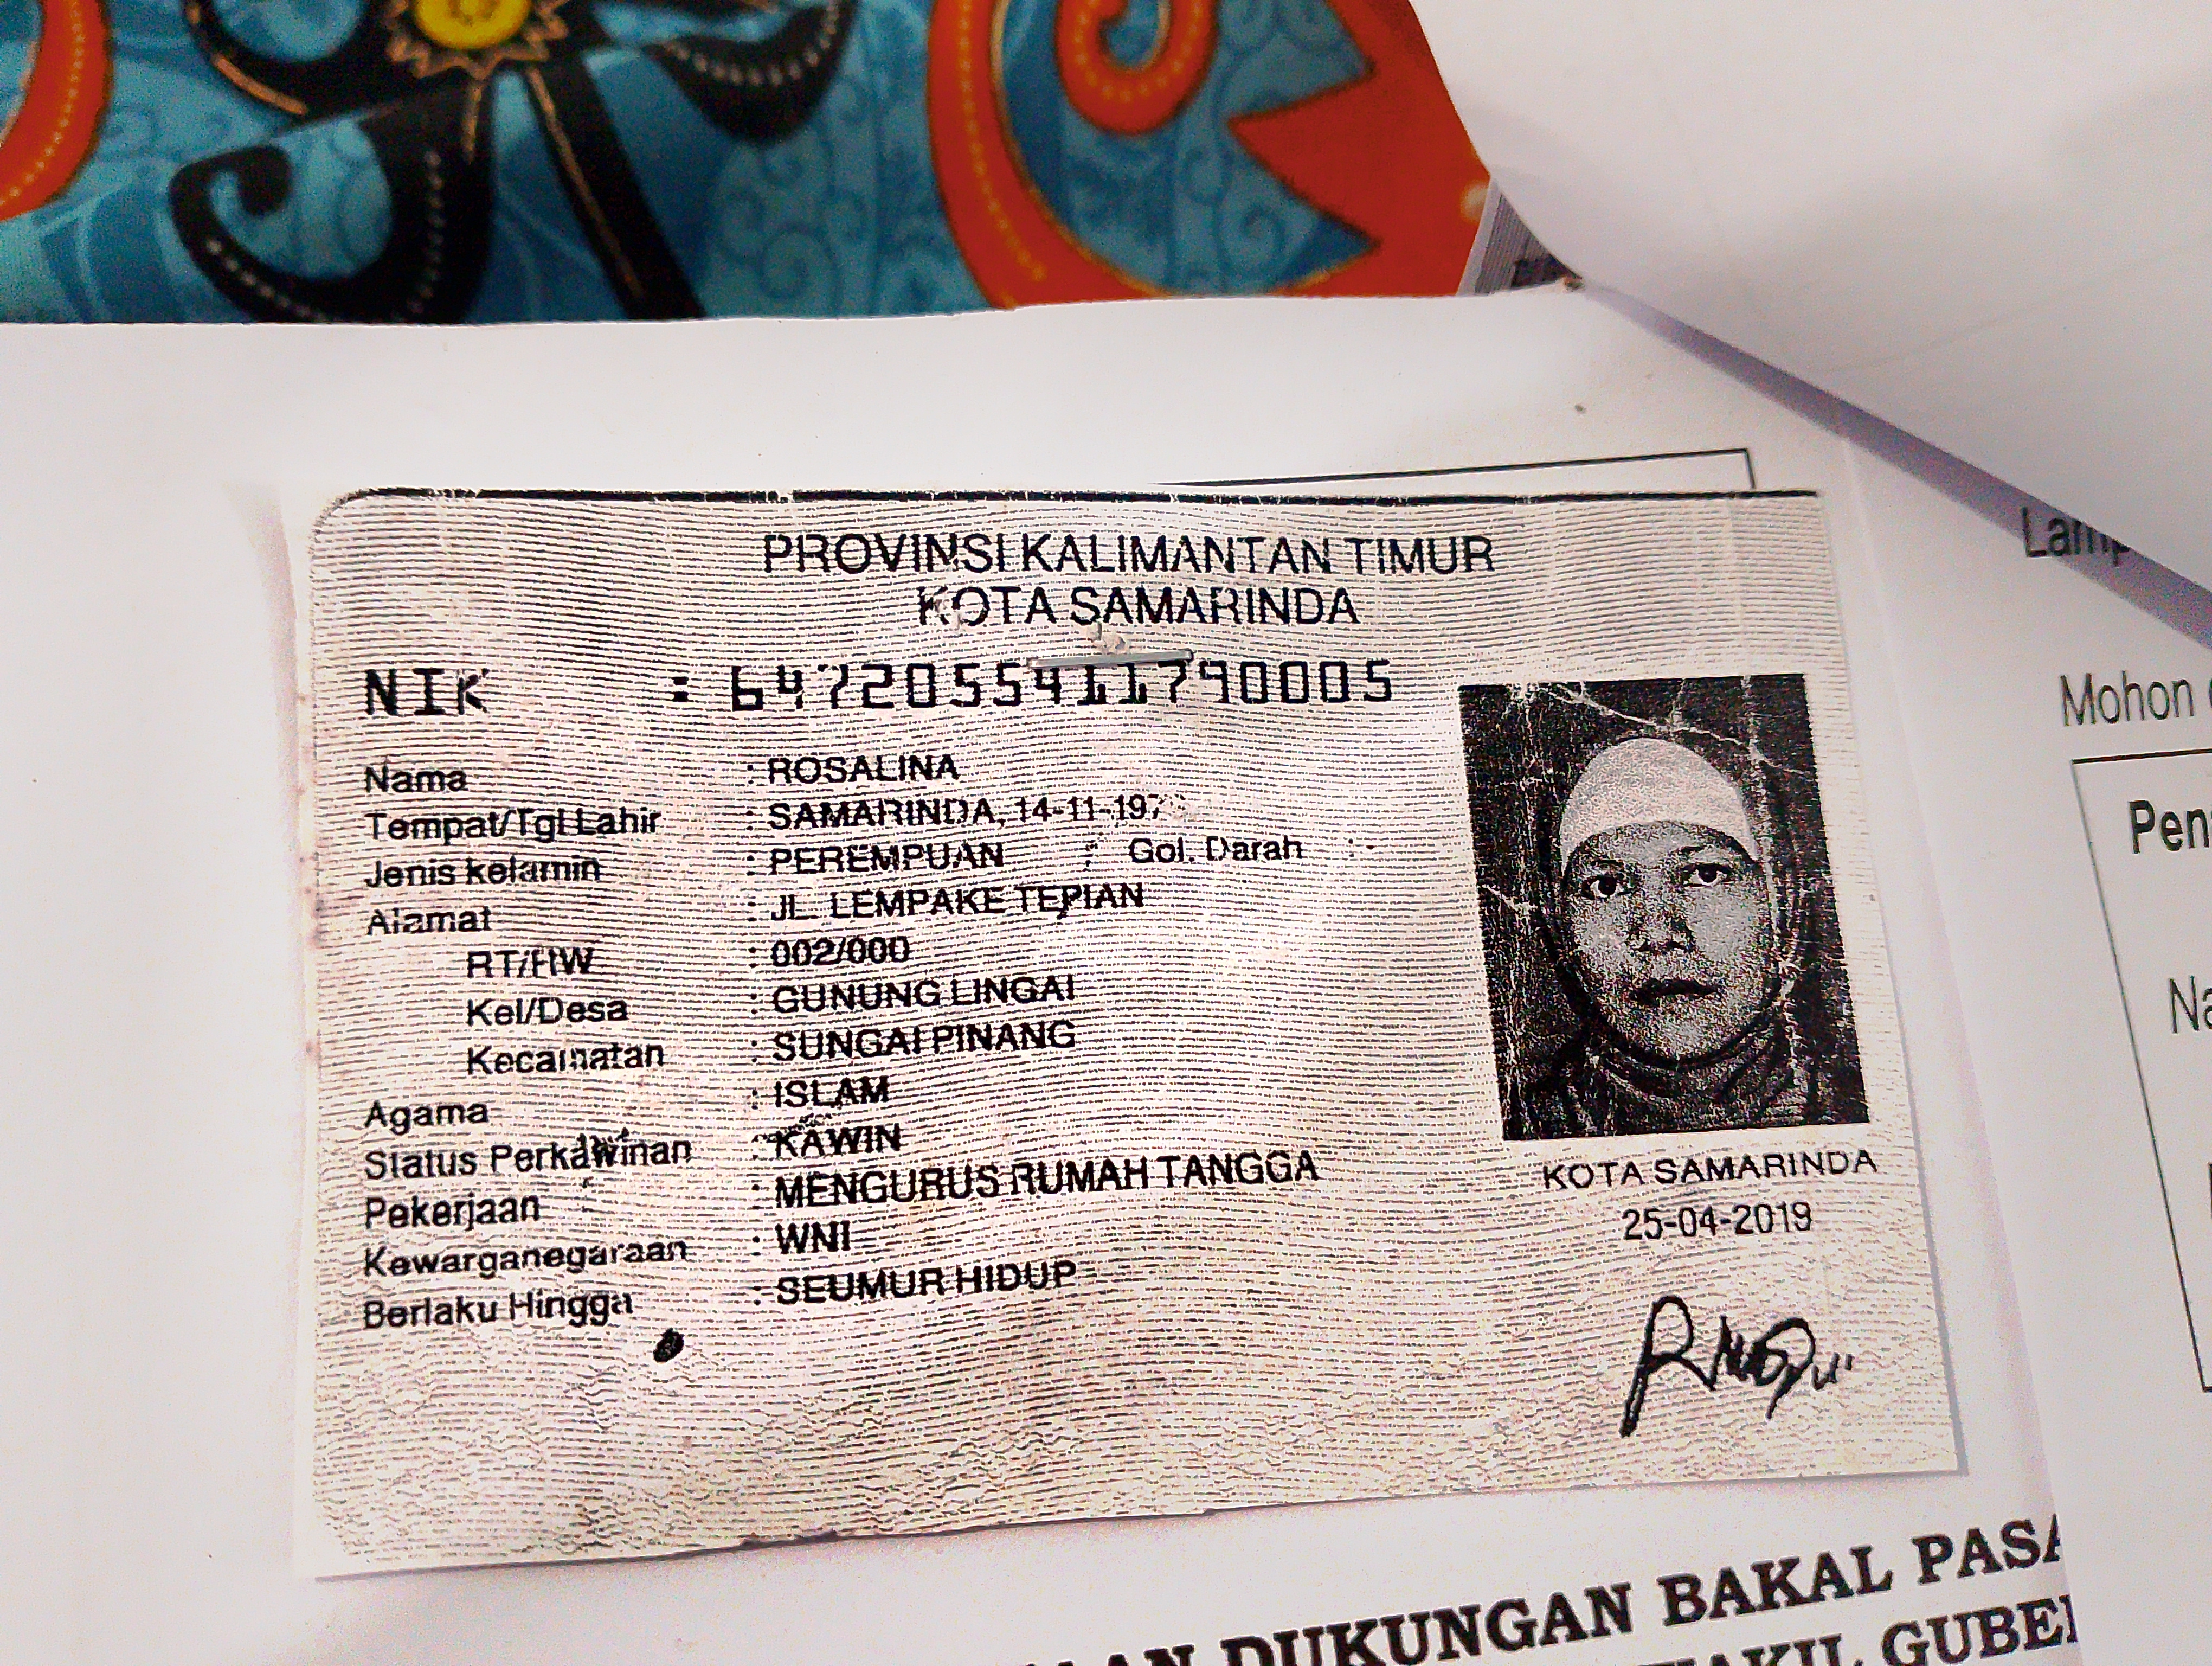 PROVINSI KALIMANTAN TIMUR
KOTA SAMARINDA
NIK : 6472055411790005
Nama : ROSALINA
Tempat/Tgl Lahir : SAMARINDA, 14-11-197
Jenis kelamin : PEREMPUAN Gol. Darah : -
Alamat : JL. LEMPAKE TEPIAN
RT/RW : 002/000
Kel/Desa : GUNUNG LINGAI
Kecamatan : SUNGAI PINANG
Agama : ISLAM
Status Perkawinan : KAWIN
Pekerjaan : MENGURUS RUMAH TANGGA
Kewarganegaraan : WNI
Berlaku Hingga : SEUMUR HIDUP
KOTA SAMARINDA
25-04-2019
Lamp
Mohon
Pen
Na
AN DUKUNGAN BAKAL PASA
AKIL GUBE